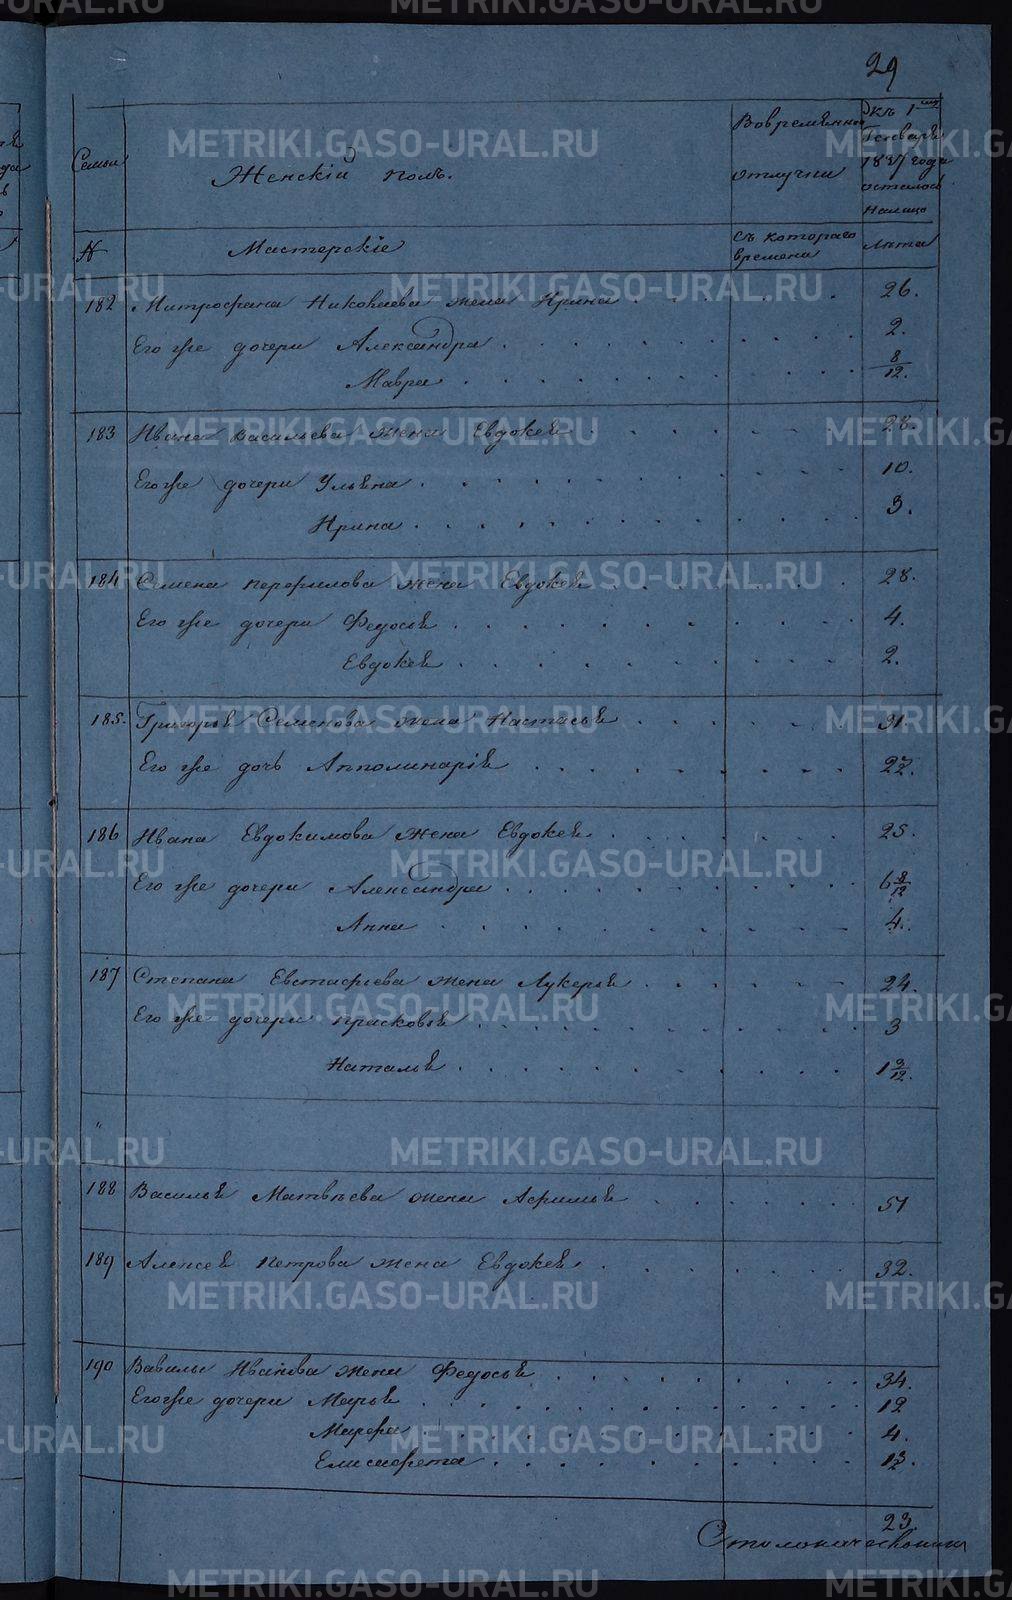 29
Семьи
Женскій полъ.
Вовременной
отлучки
Къ 1му
Генваря
1837 года
осталось
налицо
№
Мастерскіе
Съ котораго
времени
Лѣта
182 Митрофана Николаева жена Ирина 26.
Его же дочери Александра 2.
Мавра 8/12.
183 Ивана Васильева жена Евдокея 28.
Его же дочери Ульяна 10.
Ирина 3.
184 Семена Перфилова жена Евдокея 28.
Его же дочери Федосья 4.
Евдокея 2.
185. Григорья Семенова жена Настасья 31.
Его же дочь Апполинарія 22.
186 Ивана Евдокимова жена Евдокея 25.
Его же дочери Александра 6 8/12
Анна 4.
187 Степана Евстафьева жена Лукерья 24.
Его же дочери Прасковья 3
Наталья 1 9/12.
188 Василья Матвѣева жена Афимья 51
189 Алексея Петрова жена Евдокея 32.
190 Вавилы Иванова жена Федосья 34.
Его же дочери Марья 12
Марфа 4.
Елисафета
23.
METRIKI.GASO-URAL.RU